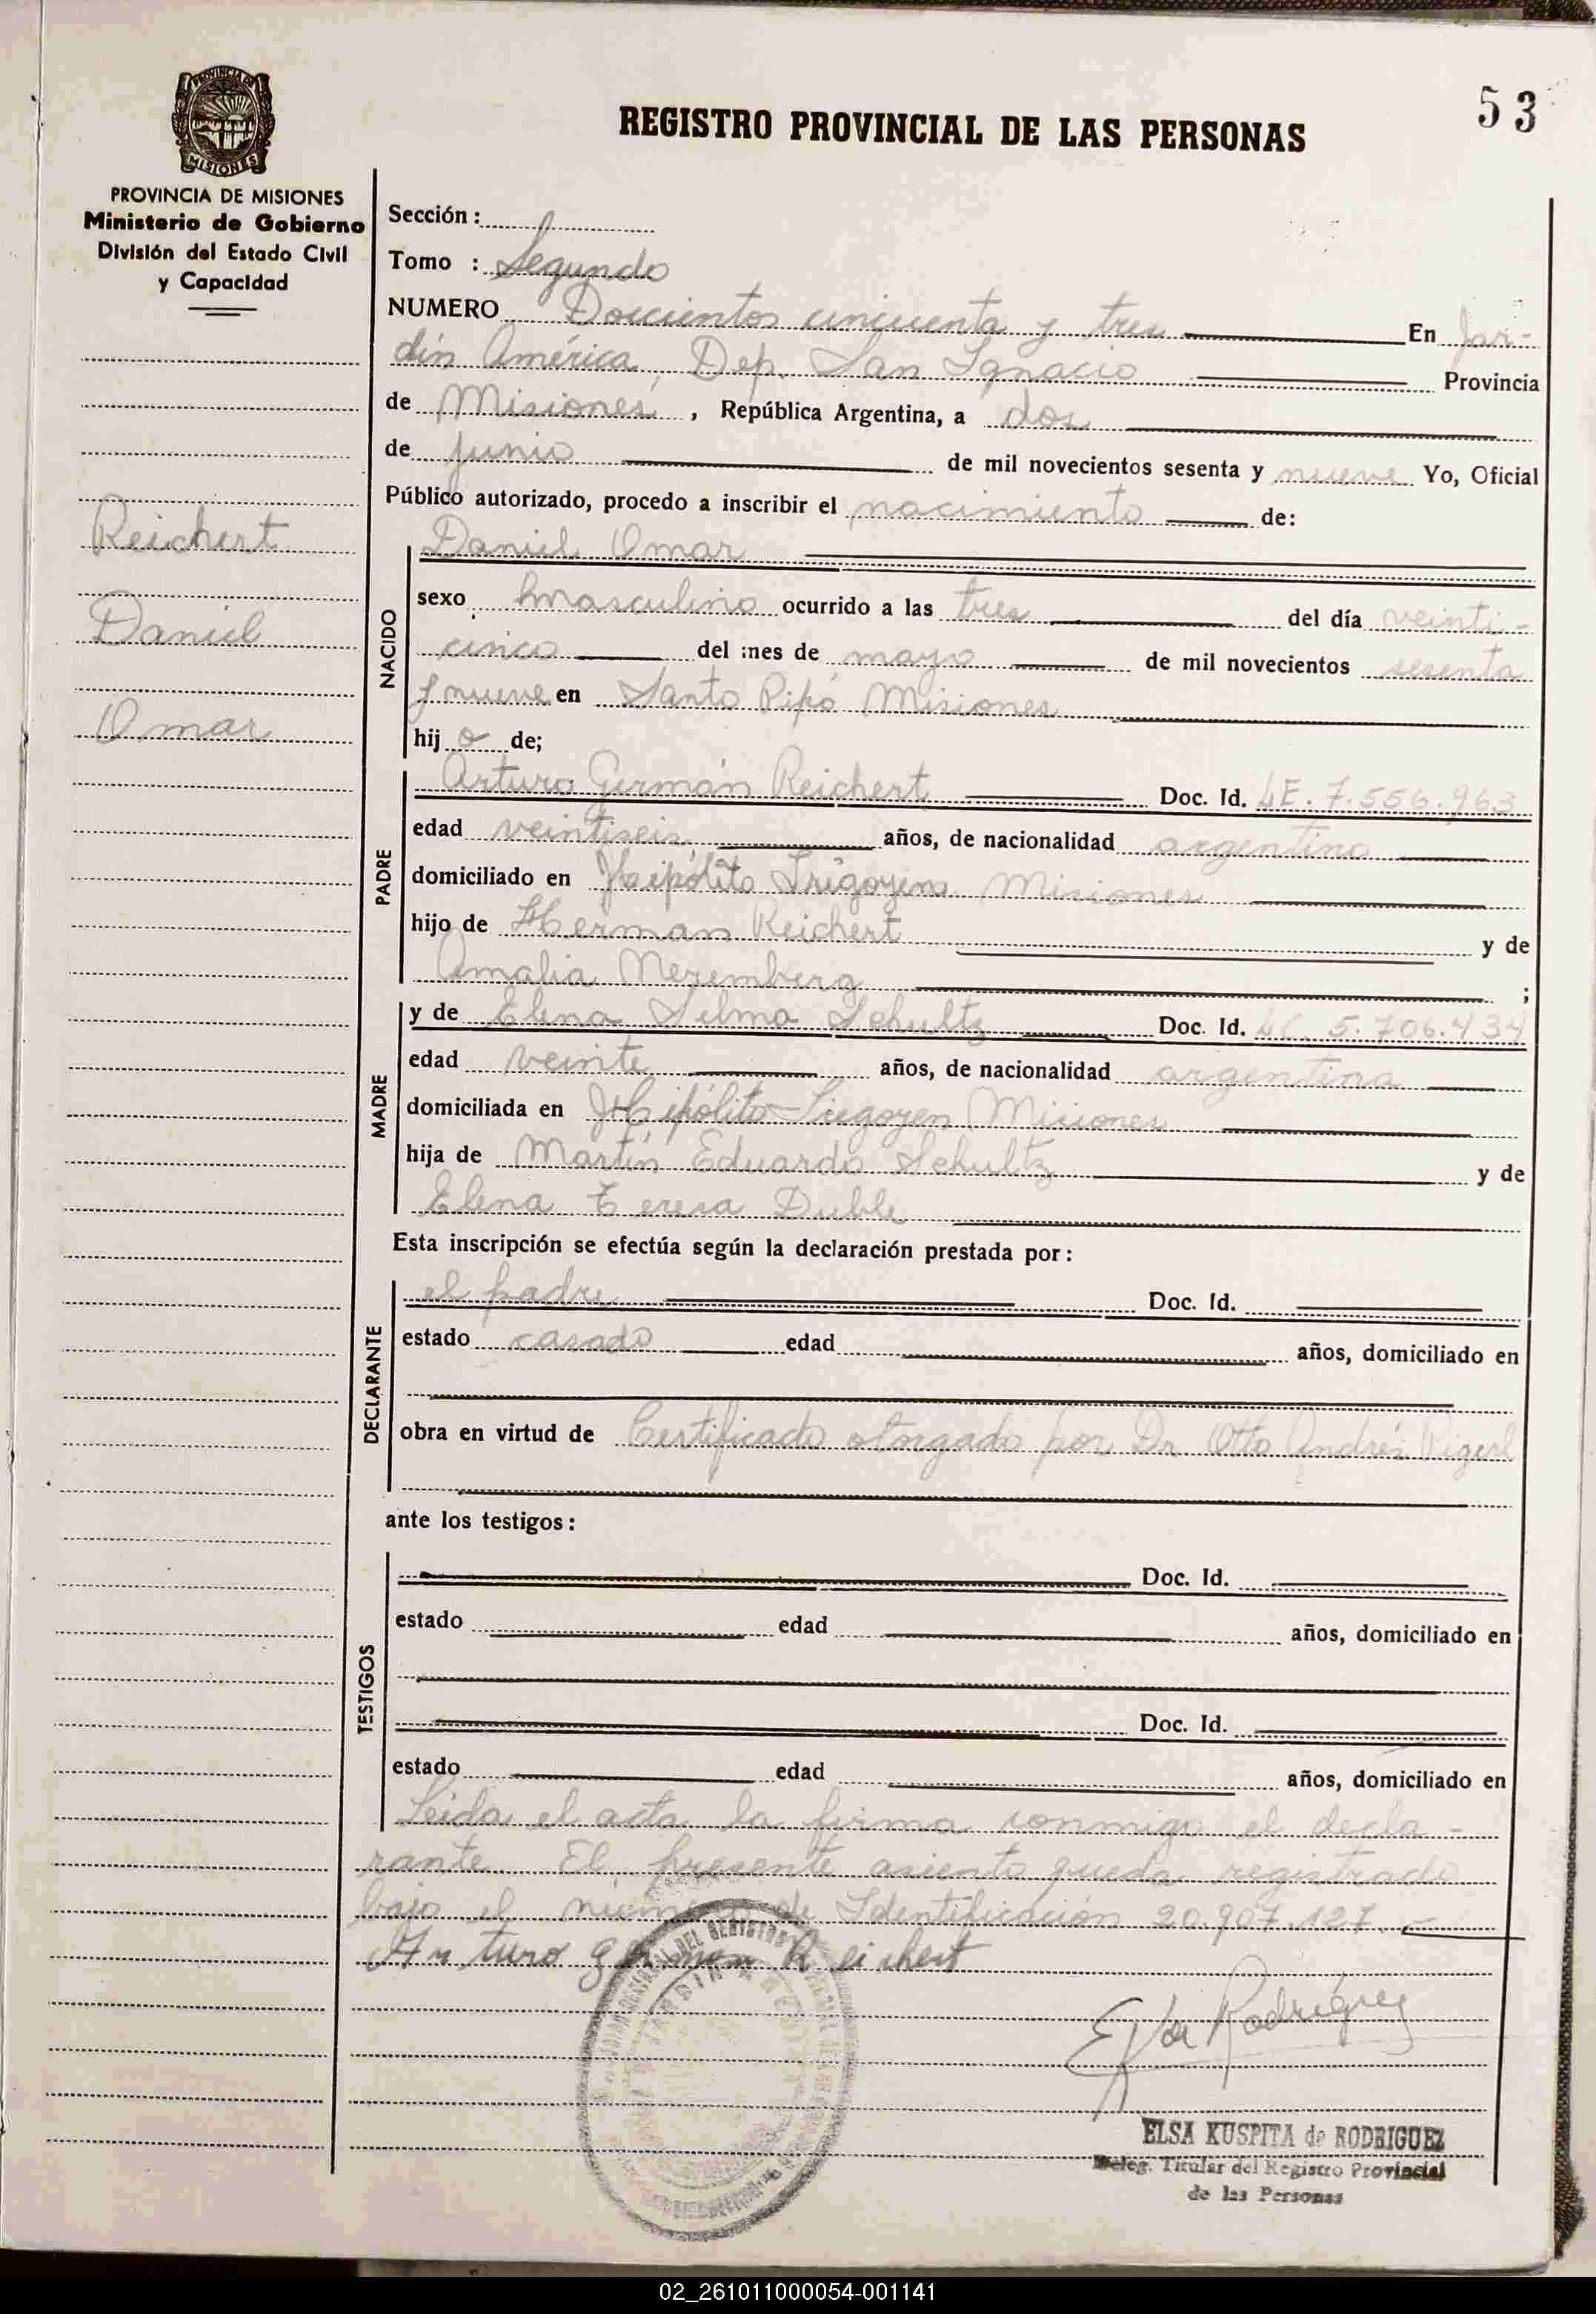 53
REGISTRO PROVINCIAL DE LAS PERSONAS
PROVINCIA DE MISIONES
PROVINCIA DE MISIONES
Ministerio de Gobierno
División del Estado Civil
y Capacidad
Reichert
Daniel
Omar
Sección:
Tomo : Segundo
NUMERO Doscientos cincuenta y tres En Jar-
dín América, Dep. San Ignacio Provincia
de Misiones, República Argentina, a dos
de junio de mil novecientos sesenta y nueve Yo, Oficial
Público autorizado, procedo a inscribir el nacimiento de:
NACIDO
Daniel Omar
sexo masculino ocurrido a las tres del día veinti-
cinco del mes de mayo de mil novecientos sesenta
y nueve en Santo Pipó Misiones
hijo de;
PADRE
Arturo Germán Reichert Doc. Id. LE. 7.556.963
edad veintiseis años, de nacionalidad argentino
domiciliado en Hipólito Irigoyen Misiones
hijo de Herman Reichert y de
Amalia Neremberg ;
MADRE
y de Elena Selma Schultz Doc. Id. LC 5.706.434
edad veinte años, de nacionalidad argentina
domiciliada en Hipólito Irigoyen Misiones
hija de Martín Eduardo Schultz y de
Elena Teresa Duble
Esta inscripción se efectúa según la declaración prestada por:
DECLARANTE
el padre Doc. Id.
estado casado edad años, domiciliado en
obra en virtud de Certificado otorgado por Dr Otto Andrés
ante los testigos:
TESTIGOS
Doc. Id.
estado edad años, domiciliado en
Doc. Id.
estado edad años, domiciliado en
Leida el acta la firma conmigo el decla-
rante. El presente asiento queda registrado
bajo el número de Identificación 20.907.127.-
Arturo german Reichert
E K de Rodriguez
ELSA KUSPITA de RODRIGUEZ
Deleg. Titular del Registro Provincial
de las Personas
02_261011000054-001141